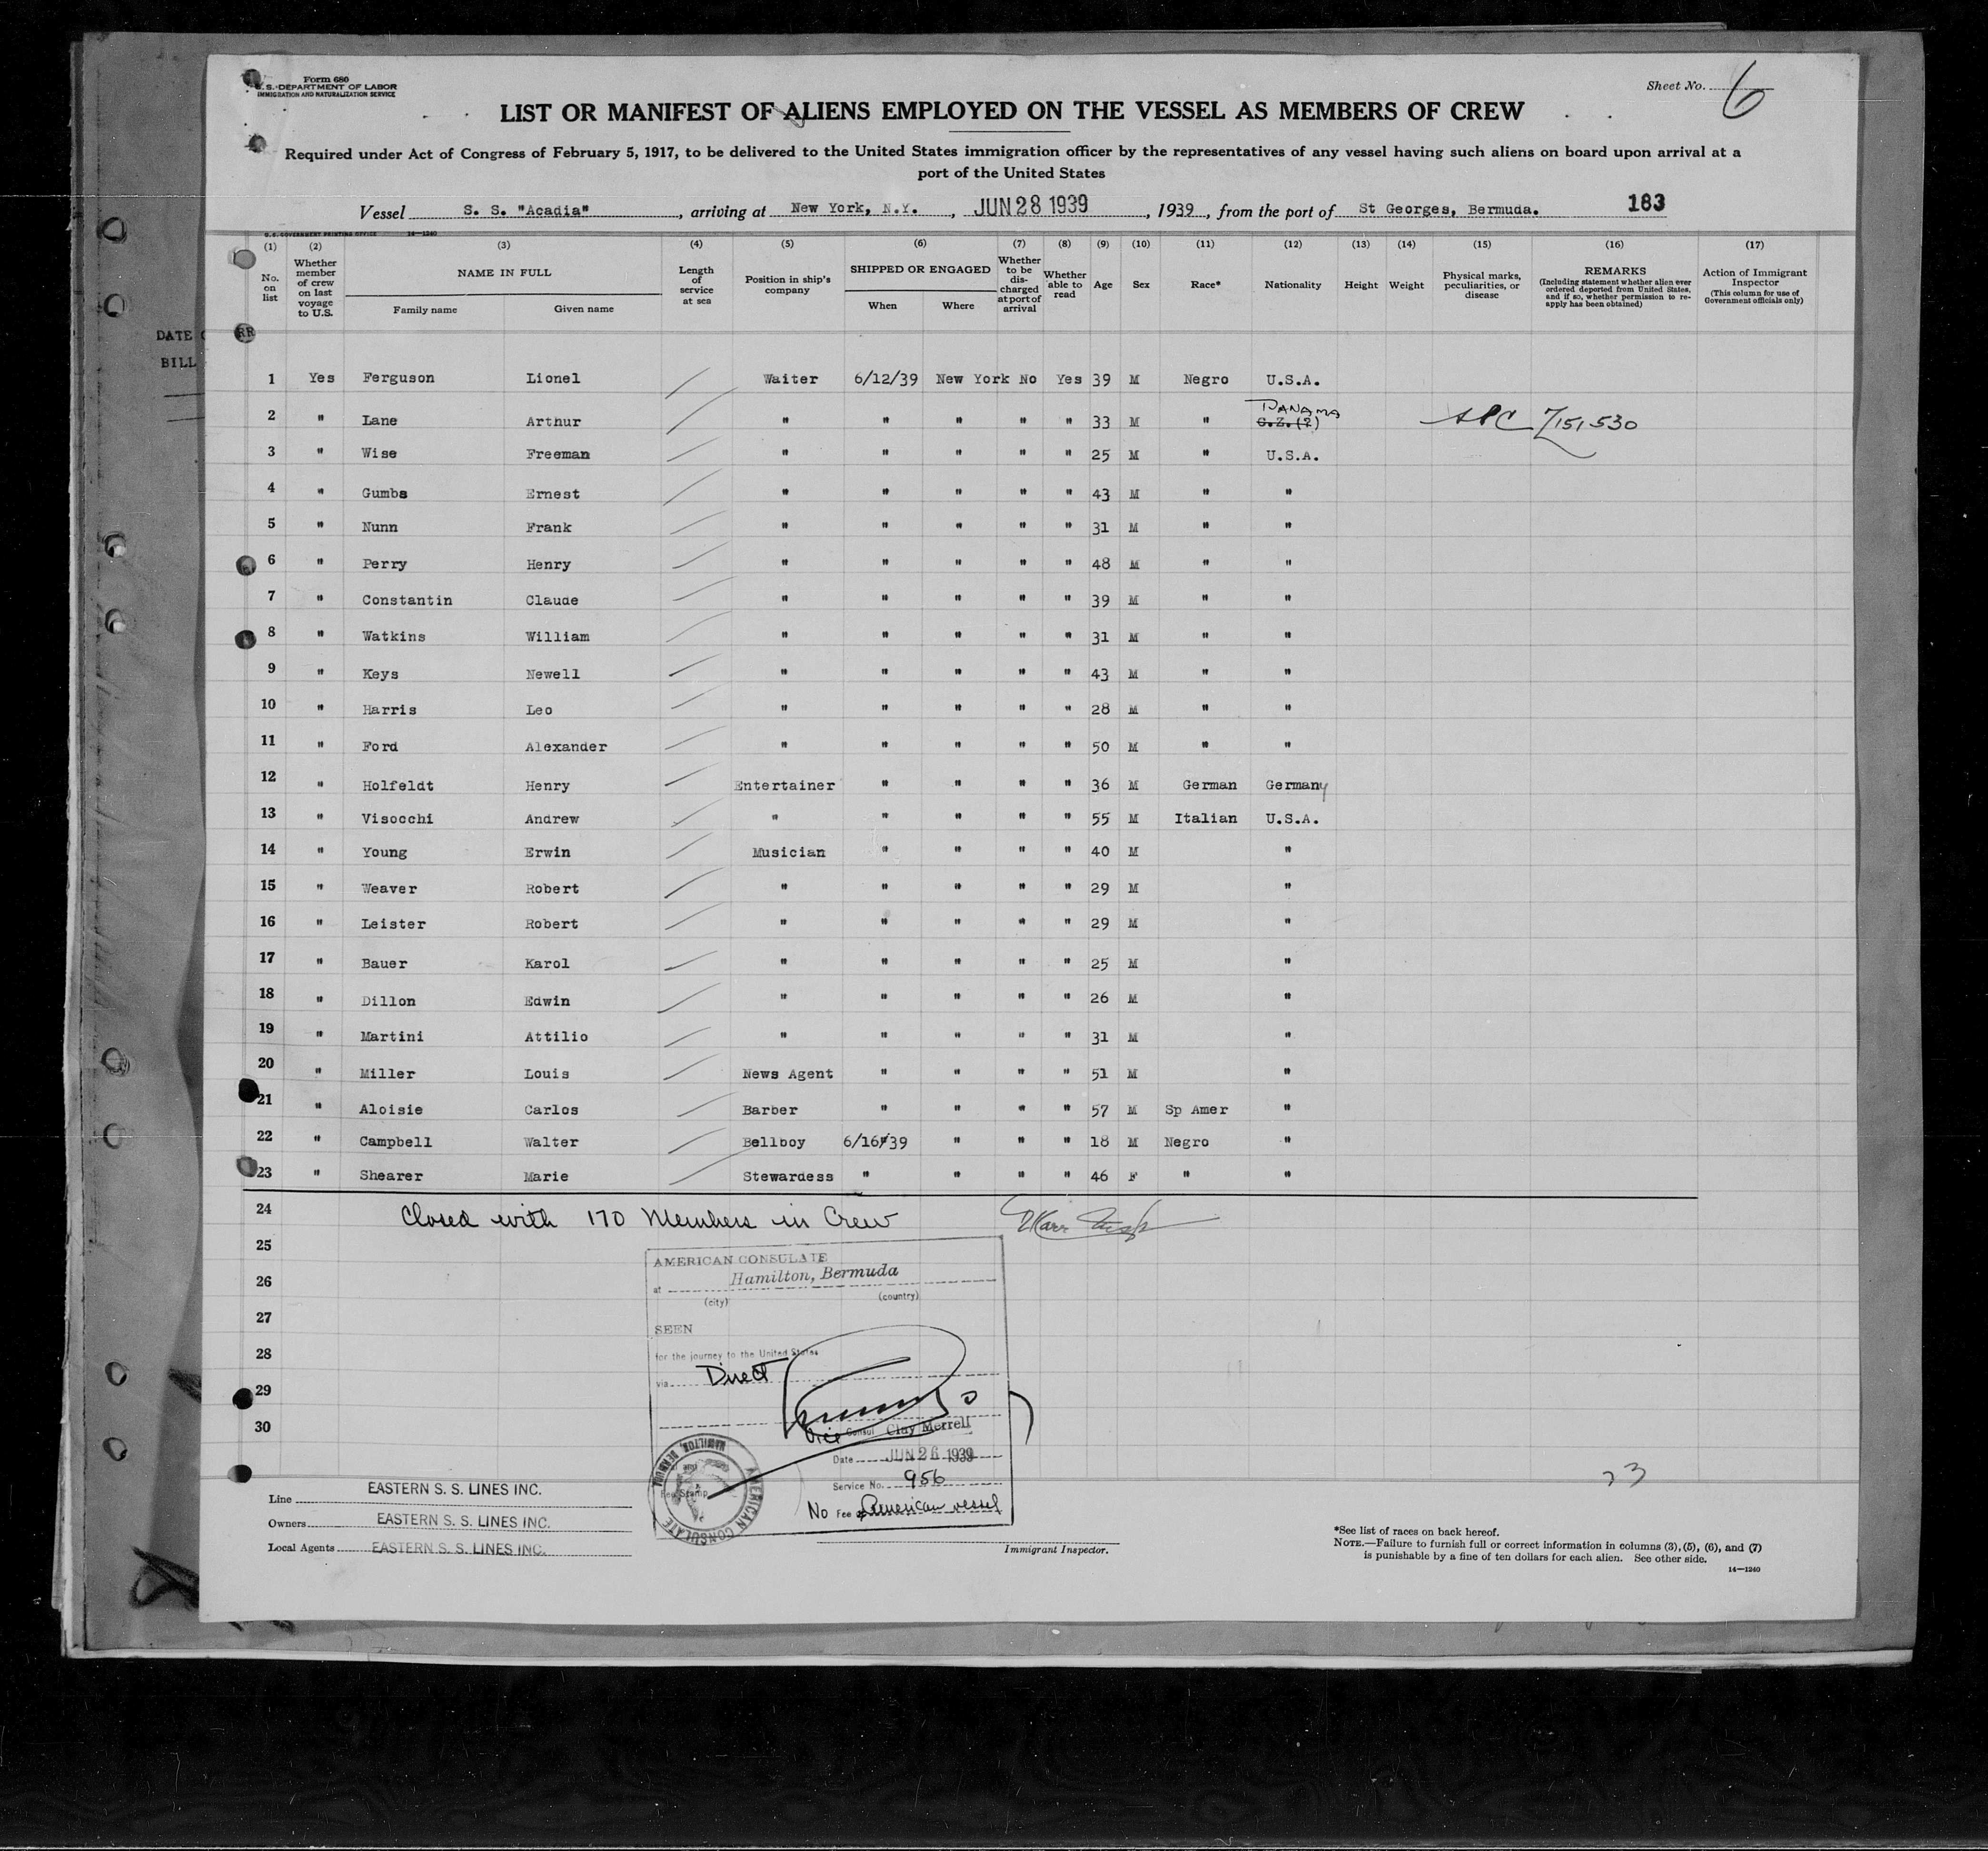 Form 680
U. S. DEPARTMENT OF LABOR
IMMIGRATION AND NATURALIZATION SERVICE
Sheet No. 6
LIST OR MANIFEST OF ALIENS EMPLOYED ON THE VESSEL AS MEMBERS OF CREW
Required under Act of Congress of February 5, 1917, to be delivered to the United States immigration officer by the representatives of any vessel having such aliens on board upon arrival at a
port of the United States
Vessel S. S. "Acadia", arriving at New York, N.Y., JUN 28 1939, 1939, from the port of St Georges, Bermuda. 183
U.S. GOVERNMENT PRINTING OFFICE 14—1240
(1) (2) (3) (4) (5) (6) (7) (8) (9) (10) (11) (12) (13) (14) (15) (16) (17)
No. on list
Whether member of crew on last voyage to U.S.
NAME IN FULL
Family name
Given name
Length of service at sea
Position in ship's company
SHIPPED OR ENGAGED
When
Where
Whether to be discharged at port of arrival
Whether able to read
Age
Sex
Race*
Nationality
Height
Weight
Physical marks, peculiarities, or disease
REMARKS
(Including statement whether alien ever ordered deported from United States, and if so, whether permission to reapply has been obtained)
Action of Immigrant Inspector
(This column for use of Government officials only)
DATE
BILL
RR
1 Yes Ferguson Lionel Waiter 6/12/39 New York No Yes 39 M Negro U.S.A.
PANAMA
2 " Lane Arthur " " " " " 33 M " C.Z.(?) 151530
3 " Wise Freeman " " " " " 25 M " U.S.A.
4 " Gumbs Ernest " " " " " 43 M " "
5 " Nunn Frank " " " " " 31 M " "
6 " Perry Henry " " " " " 48 M " "
7 " Constantin Claude " " " " " 39 M " "
8 " Watkins William " " " " " 31 M " "
9 " Keys Newell " " " " " 43 M " "
10 " Harris Leo " " " " " 28 M " "
11 " Ford Alexander " " " " " 50 M " "
12 " Holfeldt Henry Entertainer " " " " 36 M German Germany
13 " Visocchi Andrew " " " " " 55 M Italian U.S.A.
14 " Young Erwin Musician " " " " 40 M "
15 " Weaver Robert " " " " " 29 M "
16 " Leister Robert " " " " " 29 M "
17 " Bauer Karol " " " " " 25 M "
18 " Dillon Edwin " " " " " 26 M "
19 " Martini Attilio " " " " " 31 M "
20 " Miller Louis News Agent " " " " 51 M "
21 " Aloisie Carlos Barber " " " " 57 M Sp Amer "
22 " Campbell Walter Bellboy 6/16/39 " " " 18 M Negro "
23 " Shearer Marie Stewardess " " " " 46 F " "
24 Closed with 170 Members in Crew
25
26
27
28
29
30
AMERICAN CONSULATE
at Hamilton, Bermuda
(city) (country)
SEEN
for the journey to the United States
via Direct
Vice Consul Clay Merrell
Date JUN 26 1939
Service No. 956
Fee Stamp
No Fee American vessel
AMERICAN CONSULATE
HAMILTON, BERMUDA
23
Line EASTERN S. S. LINES INC.
Owners EASTERN S. S. LINES INC.
Local Agents EASTERN S. S. LINES INC.
Immigrant Inspector.
*See list of races on back hereof.
NOTE.—Failure to furnish full or correct information in columns (3), (5), (6), and (7)
is punishable by a fine of ten dollars for each alien. See other side.
14—1240